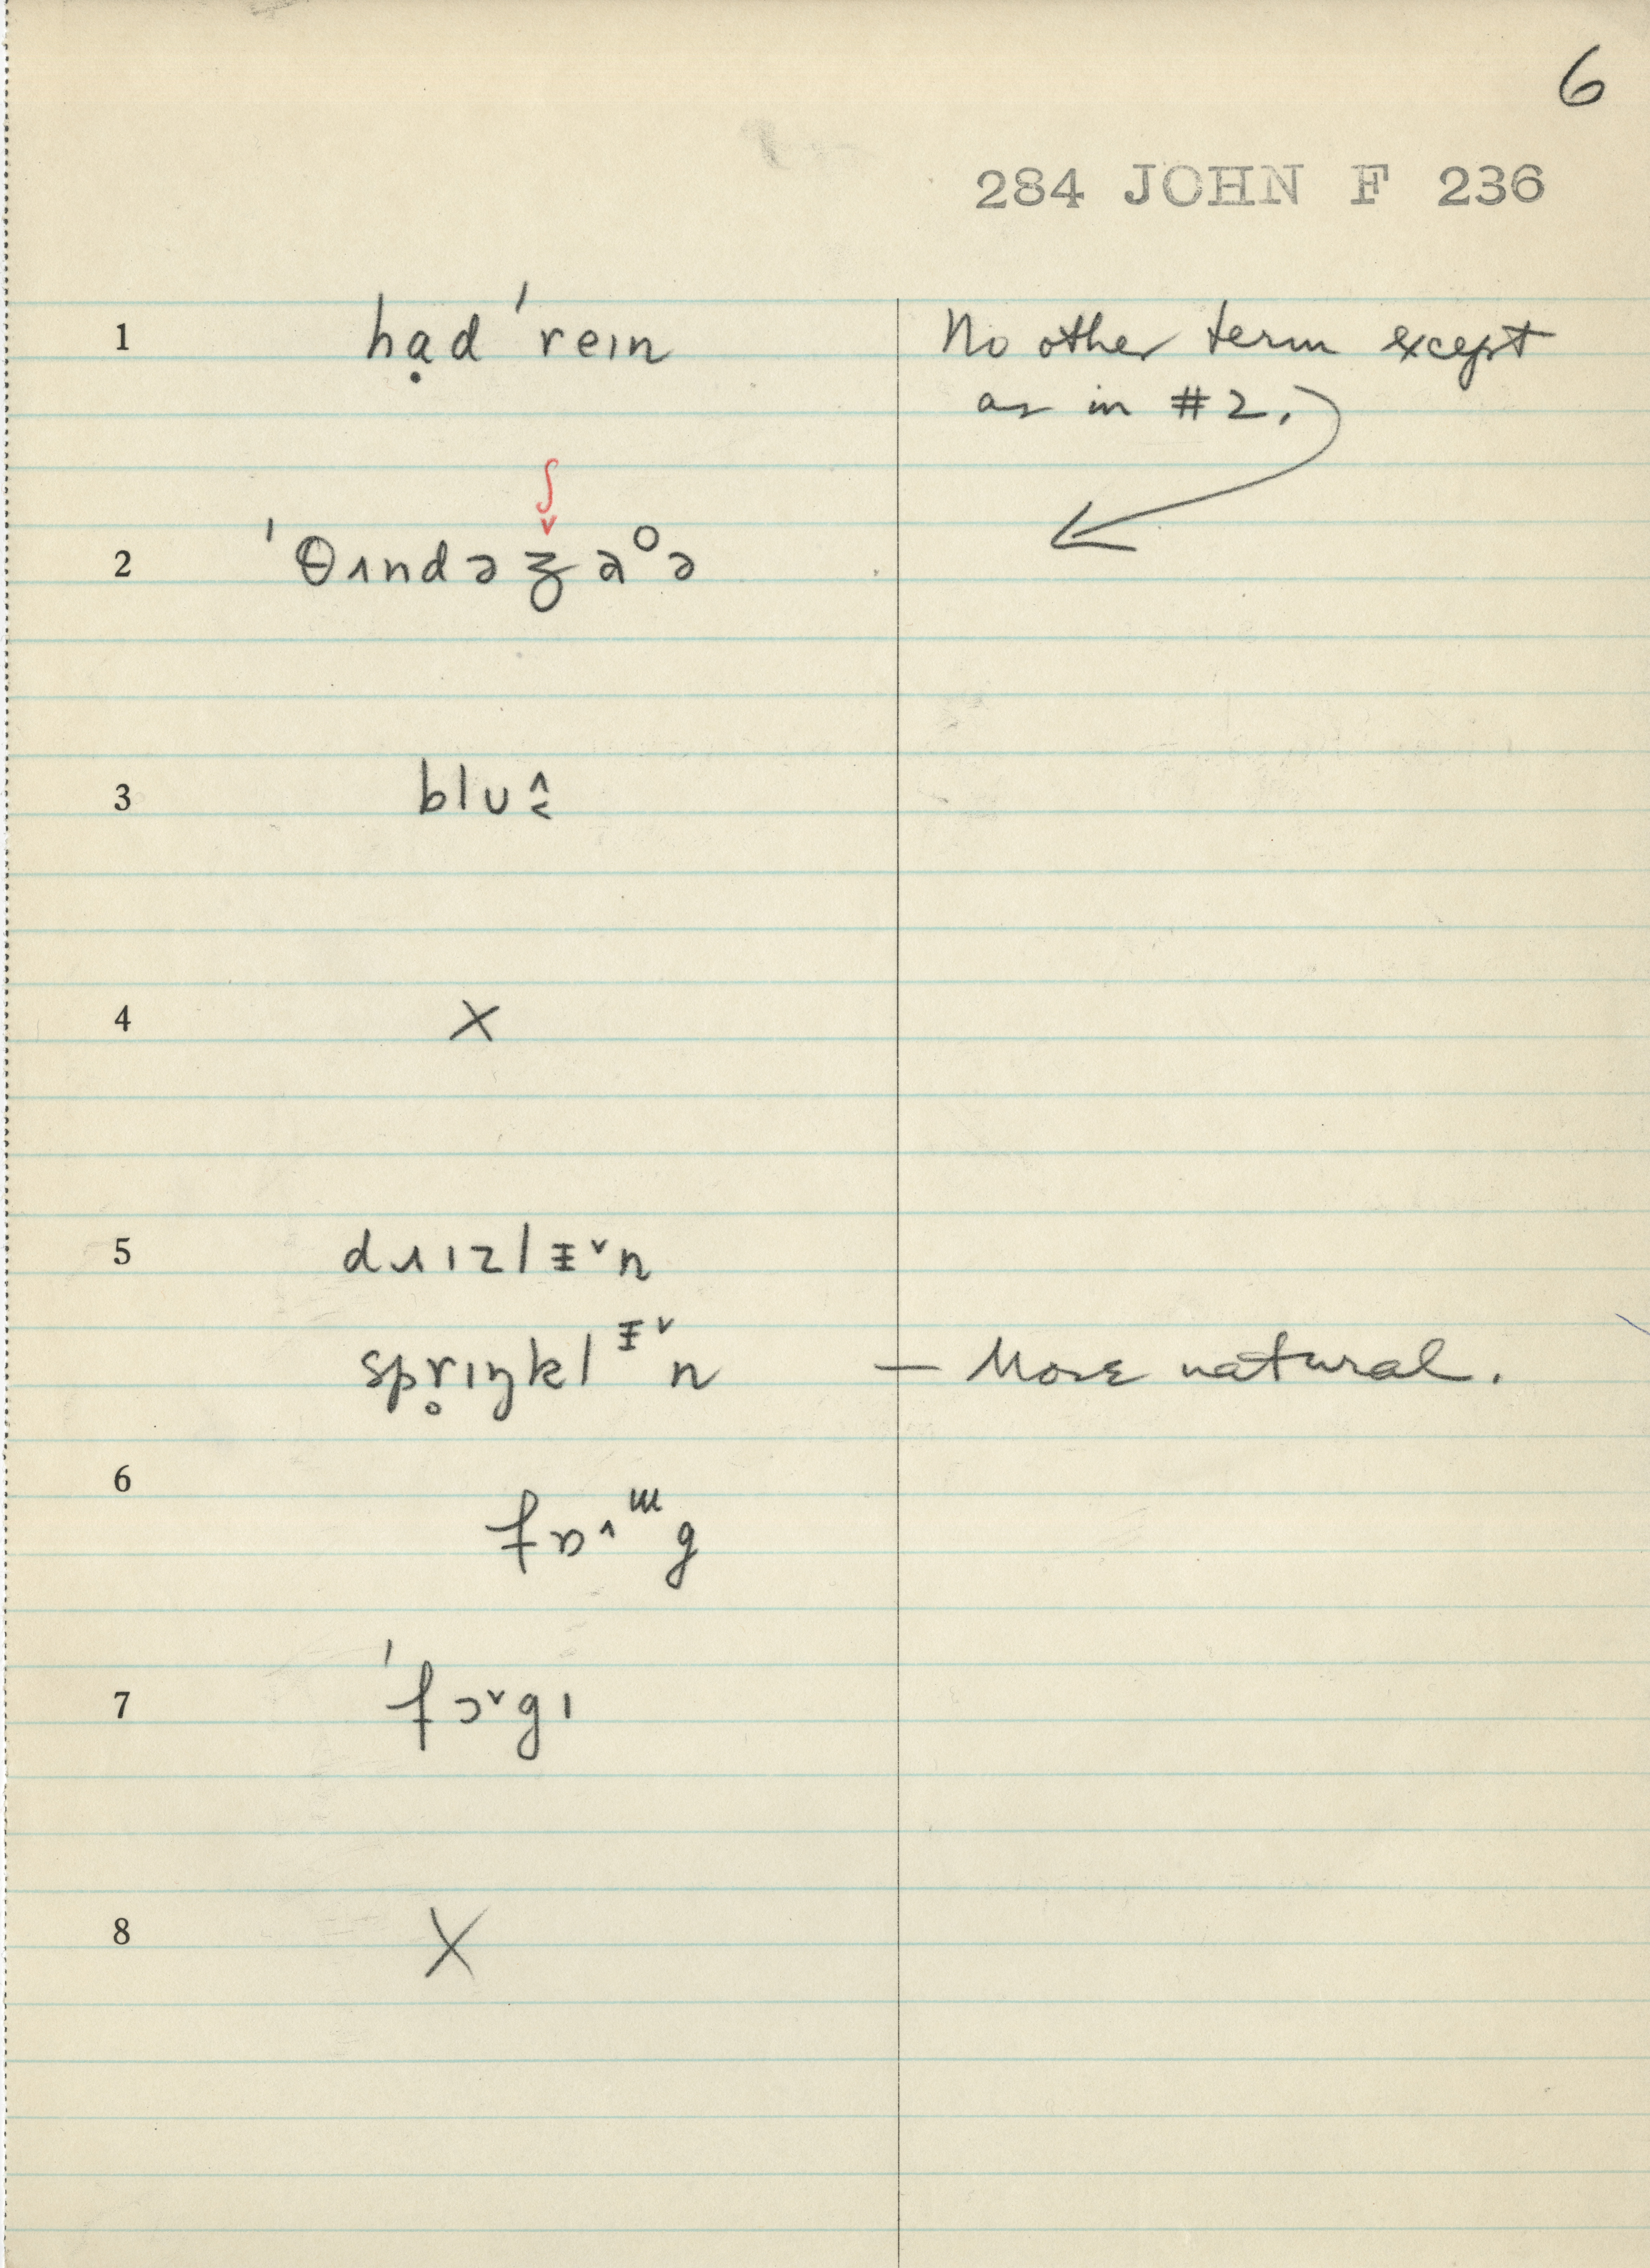 6
284 JOHN F 236
1 hạd ˈreɪn No other term except
as in #2.
ʃ
2 ˈθʌndəʒaᵒə
3 bluˆ˂
4 X
5 dɹɪzlɪ̵ˇn
spr̥ɪŋklᵻˇn — More natural.
6 fɒˆᵚg
7 ˈfɔˇgɪ
8 X